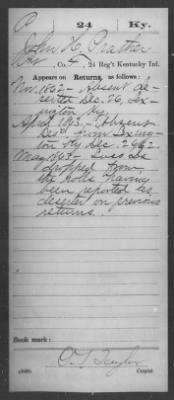 P 24 Ky.
John H. Prather
Pvt, Co. F, 24 Reg't Kentucky Inf.
Appears on Returns, as follows:
Nov. 1862 - Absent de-
serter Dec. 26, Lex-
ington Ky
April 1863 - Absent
Des. from Lexing-
ton Ky Dec. 26 62
May 1863 - Loss
dropped from
the Rolls having
been reported as
deserter on previous
returns.
Book mark:
Taylor
Copyist.